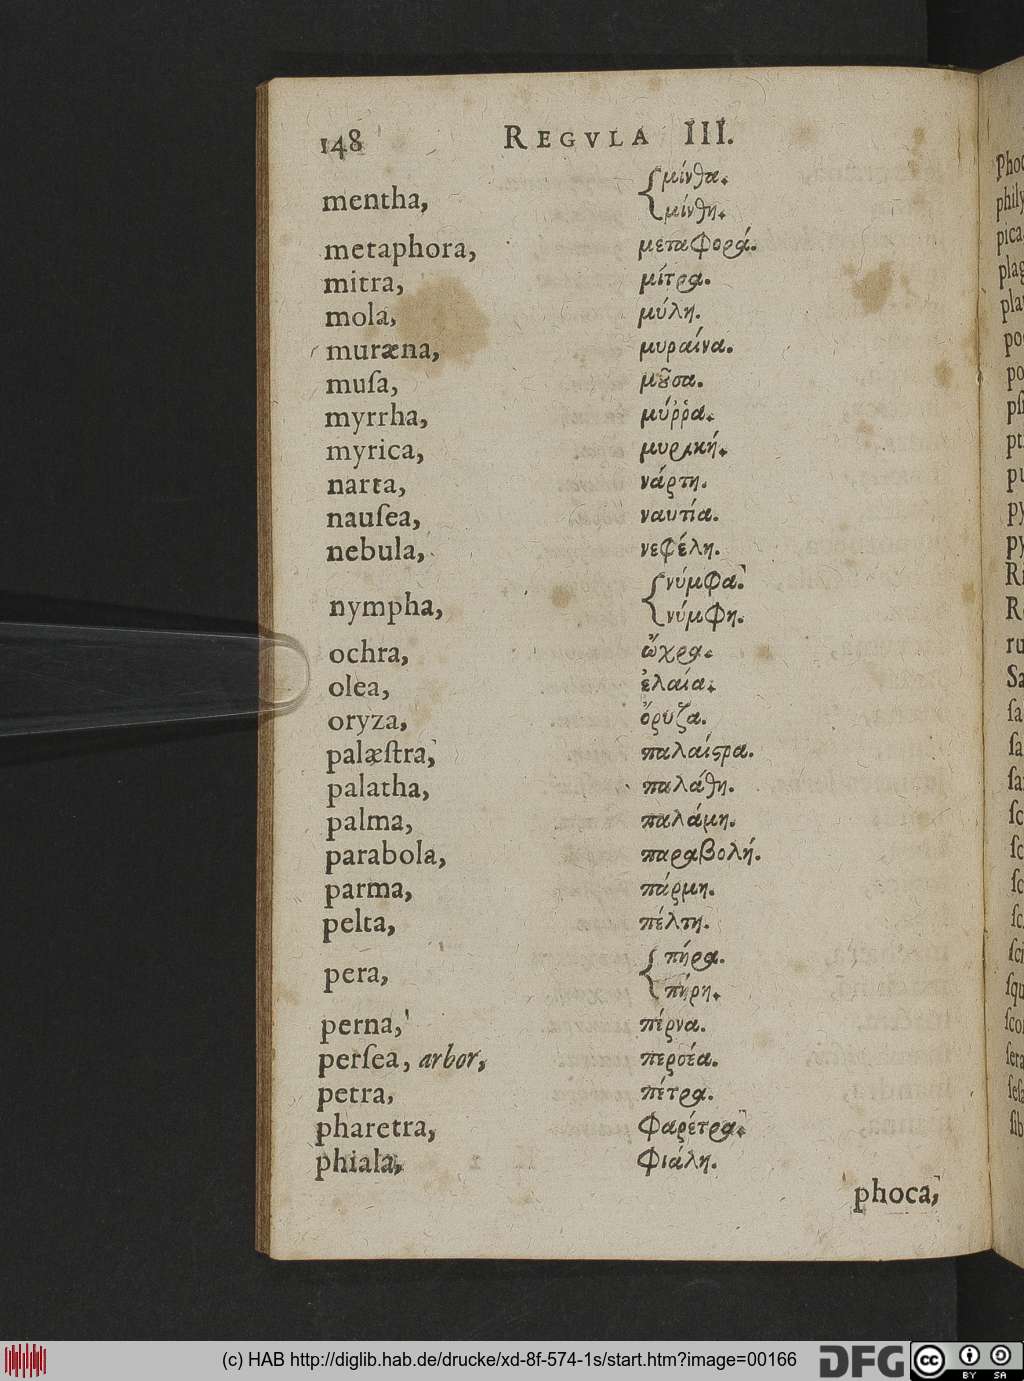 148 REGVLA III.
mentha, μίνθα.
μίνθη.
metaphora, μεταφορά.
mitra, μίτρα.
mola, μύλη.
muræna, μυραίνα.
muſa, μȣ͂σα.
myrrha, μύῤῥα.
myrica, μυρική.
narta, νάρτη.
nauſea, ναυτία.
nebula, νεφέλη.
nympha, νύμφα.
νύμφη.
ochra, ὤχρα.
olea, ἐλαία.
oryza, ὄρυζα.
palæſtra, παλαίϛρα.
palatha, παλάθη.
palma, παλάμη.
parabola, παραβολή.
parma, πάρμη.
pelta, πέλτη.
pera, πήρα.
πήρη.
perna, πέρνα.
perſea, arbor, περσέα.
petra, πέτρα.
pharetra, φαρέτρα.
phiala, φιάλη.
phoca,
(c) HAB http://diglib.hab.de/drucke/xd-8f-574-1s/start.htm?image=00166
DFG
cc BY SA